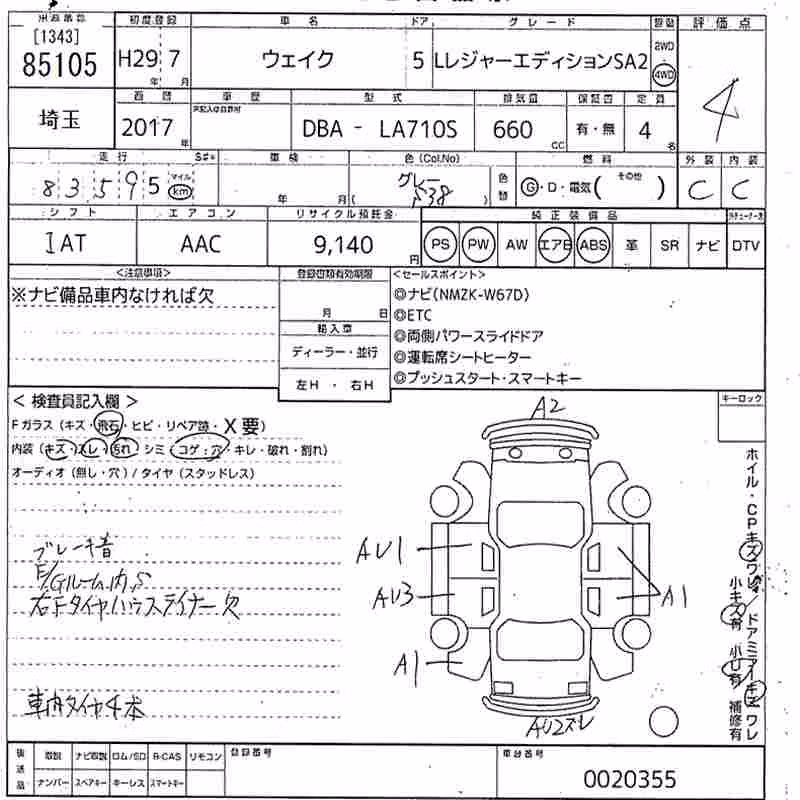 [1343]
85105
初度登録 車名 ドア グレード
H29 7 ウェイク 5 LレジャーエディションSA2
年 月
2WD
4WD
評価点
4
埼玉
西暦 車歴 型式 排気量 保証書 定員
2017 DBA - LA710S 660 有・無 4
年 CC 名
走行 車検 色(Col.No) 燃料 外装 内装
83595 マイル km
年 月
グレー
S38
色替
G・D・電気( その他 )
C C
シフト エアコン リサイクル預託金 純正装備品
IAT AAC 9,140 円 PS PW AW エアB ABS 革 SR ナビ DTV
<注意事項> 登録書類有効期限 <セールスポイント>
※ナビ備品車内なければ欠
月 日
輸入車
ディーラー・並行
左H ・ 右H
◎ナビ(NMZK-W67D)
◎ETC
◎両側パワースライドドア
◎運転席シートヒーター
◎プッシュスタート・スマートキー
<検査員記入欄>
Fガラス(キズ・飛石・ヒビ・リペア跡・X要)
内装(キズ・スレ・汚れ・シミ・コゲ・穴・キレ・破れ・割れ)
オーディオ(無し・穴)/タイヤ(スタッドレス)
キーロック
A2
ブレーキ音
F/Gルーム内S
右Fタイヤハウスライナー欠
車内タイヤ4本
AU1
AU3
A1
A1
AU2スレ
ホイル・CPキズワレ/ドアミラーキズワレ
小キズ有 小U有 補修有
後送品
取説 ナビ取説 ロム/SD B-CAS リモコン
ナンバー スペアキー キーレス スマートキー
登録番号
車台番号
0020355